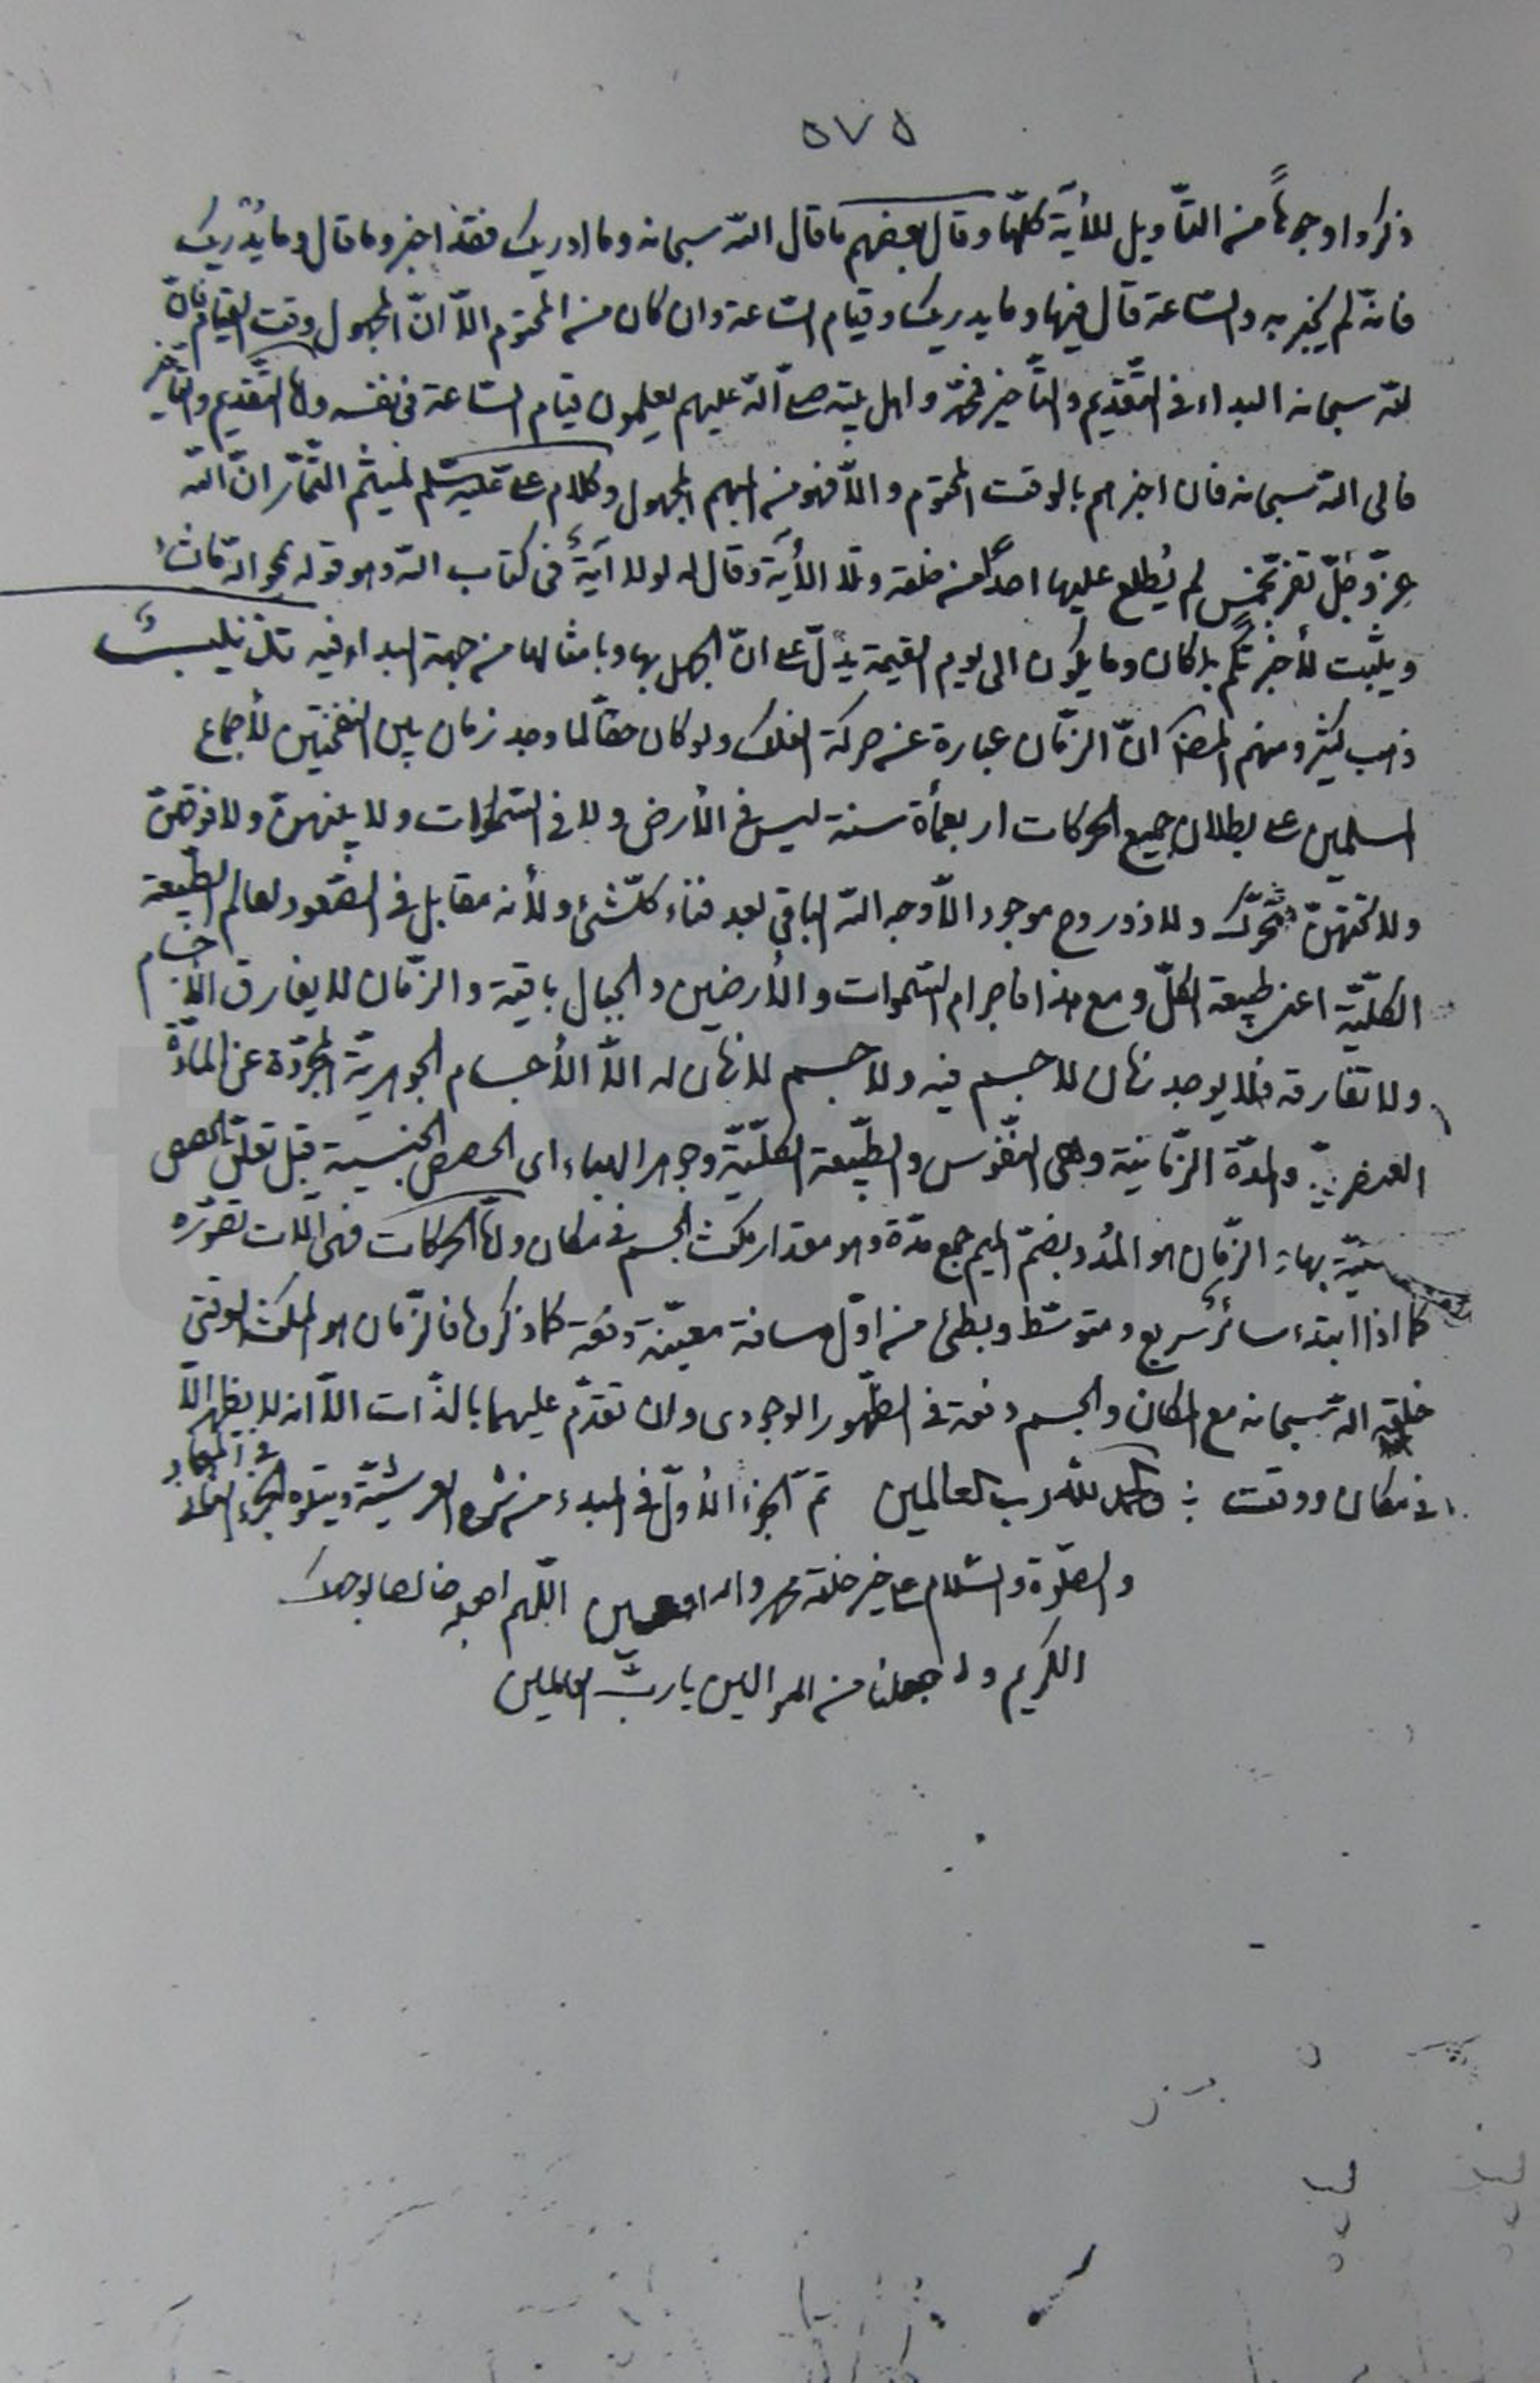 ٥٧٥
ذكروا وجوهاً من التّأويل للأية كلّها وقال بعضهم ما قال الله سبحانه وما ادريك فقد اخبر وما قال وما يدريك
فانّه لم يخبر به والسّاعة قال فيها وما يدريك وقيام السّاعة وان كان من المحتوم الّا انّ المجهول وقت القيام فانّ
لله سبحانه البداء في التّقديم والتّأخير فمحمّد واهل بيته صلى الله عليهم يعلمون قيام السّاعة في نفسه وامّا التّقديم والتّأخير
فالى الله سبحانه فان اخبرهم بالوقت المحتوم والّا فهو من المبهم المجهول وكلام على عليه السّلم لميثم التّمّار انّ الله
عزّ وجلّ تفرّد بخمس لم يُطلع عليها احداً من خلقه وتلا الأية وقال له لولا آيةٌ في كتاب الله وهو قوله يمحو الله ما يشاء
ويثبت لأخبرتكم بما كان وما يكون الى يوم القيمة يدلّ على انّ الجهل بها وبامثالها من جهة البداء فيه تذنيب
ذهب كثير ومنهم المصنّف انّ الزّمان عبارة عن حركة الفلك ولو كان حقّاً لما وجد زمان بين النفختين لأجماع
المسلمين على بطلان جميع الحركات اربعمأة سنة ليس في الأرض ولا في السّموات ولا بينهنّ ولا فوقهنّ
ولا تحتهنّ متحرّك ولا ذو روح موجود الّا وجه الله الباقي بعد فناء كلّ شئ ولأنه مقابل في الصّعود لعالم الطّبيعة
الكليّة اعني طبيعة الكلّ ومع هذا فاجرام السّموات والأرضين والجبال باقية والزّمان لا يفارق الأجسام
ولا تفارقه فلا يوجد زمان لا جسم فيه ولا جسم لا زمان له الّا الأجسام الجوهريّة المجرّدة عن المادّة
العنصريّة والمدّة الزّمانيّة وهى النّفوس والطّبيعة الكلّيّة وجوهر الهباء اى الحصص الجنسية قبل تعلّق الحصص
بها الزّمان هو المُدد بضمّ الميم جمع مدّة وهو مقدار مكث الجسم في مكان وامّا الحركات فهى آلات تصوّره
كما اذا ابتدء سائر سريع ومتوسّط وبطئ من اوّل مسافة معيّنة دفعة كما ذكرنا فالزّمان هو المكث الوقتى
خلقه الله سبحانه مع المكان والجسم دفعة في الظّهور الوجودى وان تقدّم عليهما بالذّات الّا انه لا يظهر الّا
في مكان ووقت والحمد لله رب العالمين تمّ الجزء الأوّل في المبدء من شرح العرشيّة ويتلوه الجزء الثّانى في المعاد
والصّلوة والسّلام على خير خلقه محمد واله اجمعين اللّهم اجعله خالصا لوجهك
الكريم واجعلنا من الموالين يا ربّ العالمين